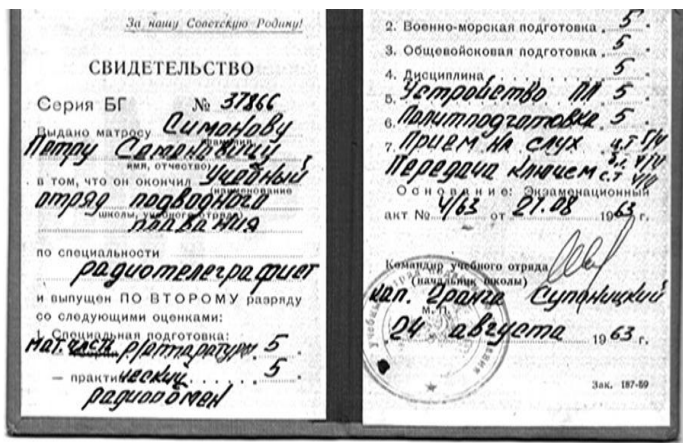 За нашу Советскую Родину!
СВИДЕТЕЛЬСТВО
Серия БГ № 37866
Выдано матросу Симонову
фамилия,
Петру Семеновичу
имя, отчество)
в том, что он окончил Учебный
(наименование
отряд подводного
школы, учебного отряда)
плавания
по специальности
радиотелеграфист
и выпущен ПО ВТОРОМУ разряду
со следующими оценками:
1. Специальная подготовка:
мат. часть р/аппаратуры 5
— практический 5
радиообмен
2. Военно-морская подготовка 5
3. Общевойсковая подготовка 5
4. Дисциплина 5
5. Устройство ПЛ 5
6. Политподготовка 5
7. Прием на слух
Передача ключем
Основание: Экзаменационный
акт № 4/63 от 21.08 1963 г.
Командир учебного отряда
(начальник школы)
кап. 2 ранга Супоницкий
М. П.
24 августа 1963 г.
Зак. 187-59